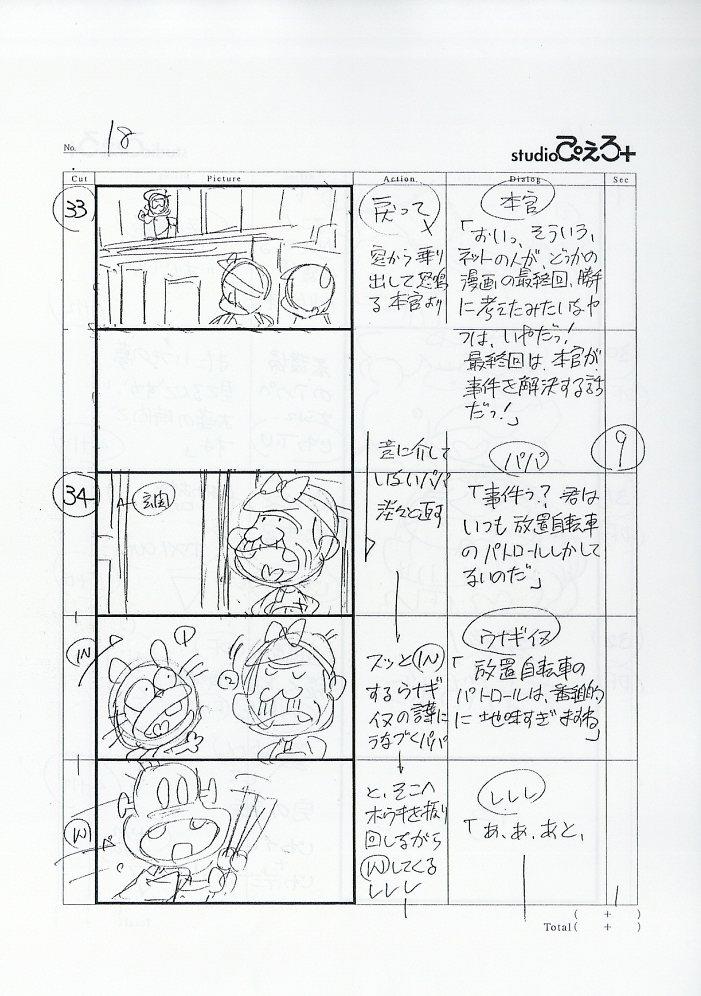 No. 18
studioぴえろ+
Cut
Picture
Action
Dialog
Sec
33
戻って
窓から乗り
出して怒鳴
る本官より
本官
「おいっ、そういう、
ネットの人が、どっかの
漫画の最終回、勝手
に考えたみたいなヤ
ツは、いやだっ!
最終回は、本官が
事件を解決する話
だっ!」
9
34
意に介して
しないパパ
淡々と返す
パパ
「事件っ?君は
いつも放置自転車
のパトロールしかして
ないのだ」
IN
①
②
スッとIN
するウナギ
イヌの
うなづくパパ
ウナギイヌ
「放置自転車の
パトロールは、番組的
に地味すぎますね」
IN
と、そこへ
ホウキを振り
回しながら
INしてくる
レレレ
レレレ
「あ、あ、あと、
( + )
Total ( + )